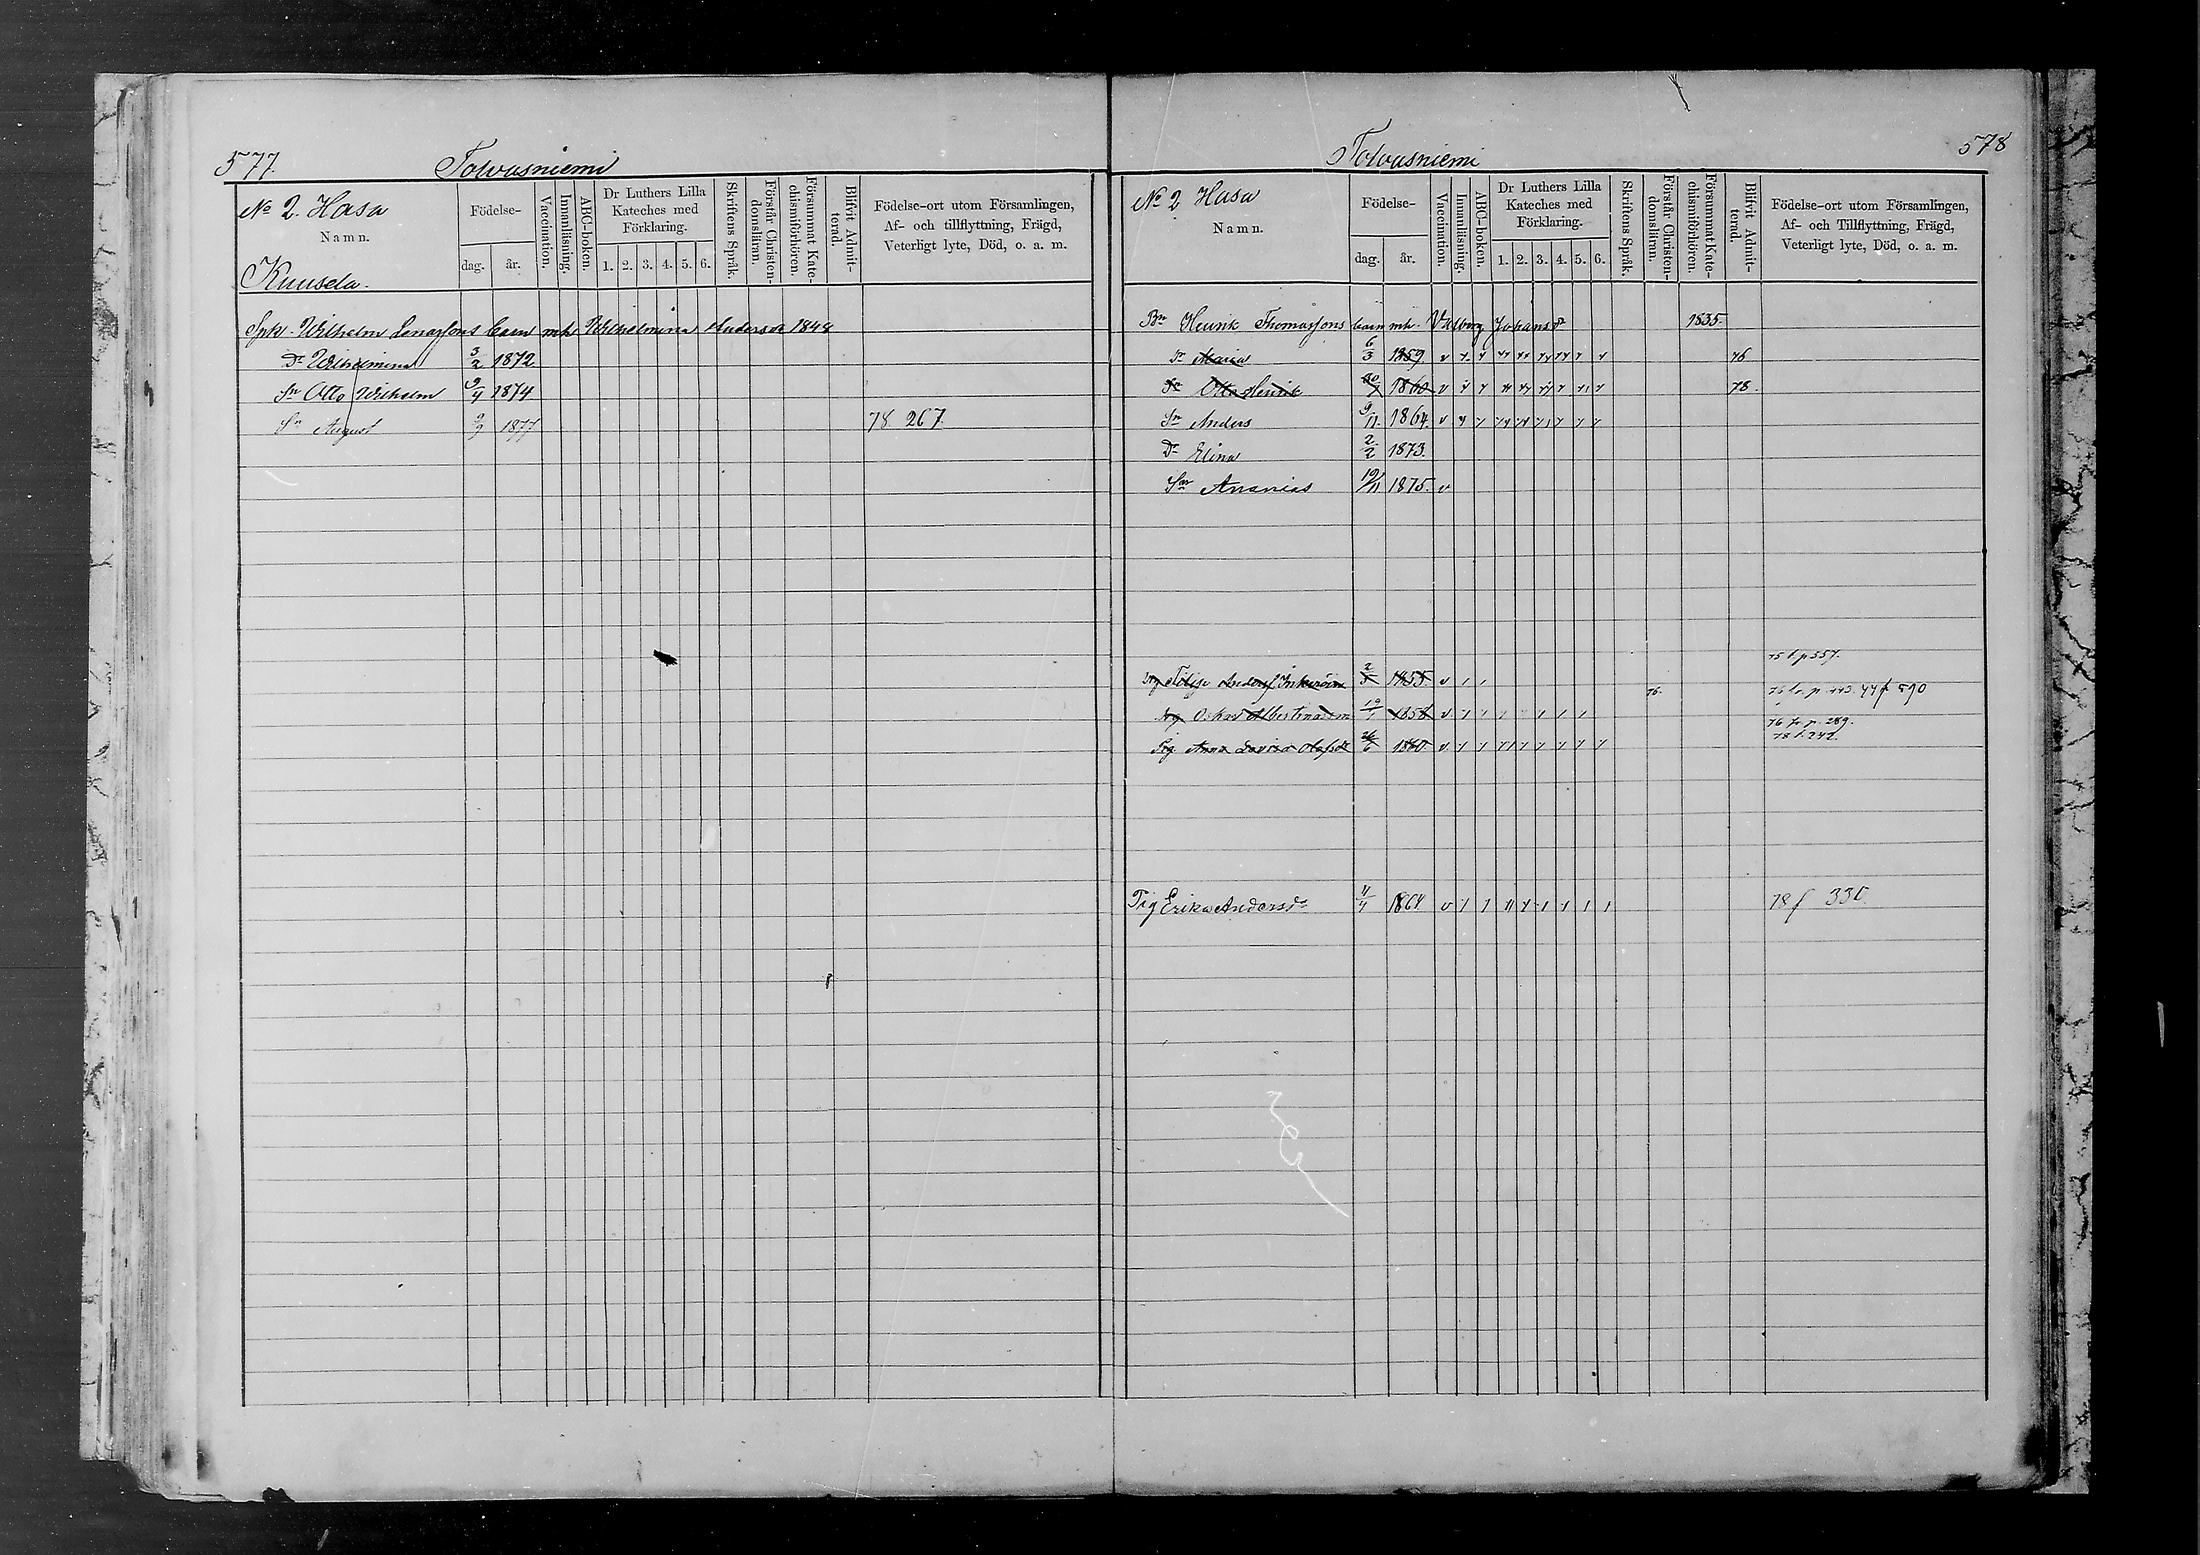 577.
Totvusniemi
No 2. Hasa
Namn.
Kuusela.
Födelse-
dag. år.
Vaccination.
Innanläsning.
ABC-boken.
Dr Luthers Lilla Kateches med Förklaring.
1. 2. 3. 4. 5. 6.
Skriftens Språk.
Förstår Christen-domsläran.
Försummat Kate-chismiförhören.
Blifvit Admit-terad.
Födelse-ort utom Församlingen,
Af- och tillflyttning, Frägd,
Veterligt lyte, Död, o. a. m.
Wilhelm barn mh Wilhelmina Andersdr 1848
Dr Wilhelmina 3/2 1872
Sn Otto Wilhelm 9/4 1874
Sn August 2/9 1877 78 267.
578
Totvusniemi
No 2 Hasa
Namn.
Födelse-
dag. år.
Vaccination.
Innanläsning.
ABC-boken.
Dr Luthers Lilla Kateches med Förklaring.
1. 2. 3. 4. 5. 6.
Skriftens Språk.
Förstår Christen-domsläran.
Försummat Kate-chismiförhören.
Blifvit Admit-terad.
Födelse-ort utom Församlingen,
Af- och Tillflyttning, Frägd,
Veterligt lyte, Död, o. a. m.
Bn Henrik Thomassons barn mh. Valborg Johansdr 1835.
Dr Maria 6/3 1859. v 76
Sn Otto Henrik 1860 v 78.
Sn Anders 9/11. 1864. v
Dr Elina 2/2 1873.
Sn Ananias 19/11 1875. v
75 f. p 557.
Andersf 1855 v
76. 76 fr. p. 443. 77 f 590
Oskar 19/1 1858 v
76 fr p. 289.
78 f. 242.
Pig Anna Lovisa Olofsdr 26/6 1860 v
Pig Erika Andersdr 11/4 1864 v 78 f 330.